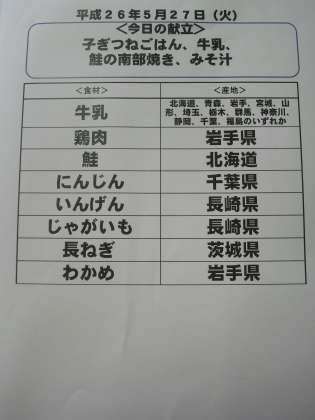 平成26年5月27日（火）
＜今日の献立＞
子ぎつねごはん、牛乳、
鮭の南部焼き、みそ汁
＜食材＞ ＜産地＞
牛乳 北海道、青森、岩手、宮城、山
形、埼玉、栃木、群馬、神奈川、
静岡、千葉、福島のいずれか
鶏肉 岩手県
鮭 北海道
にんじん 千葉県
いんげん 長崎県
じゃがいも 長崎県
長ねぎ 茨城県
わかめ 岩手県